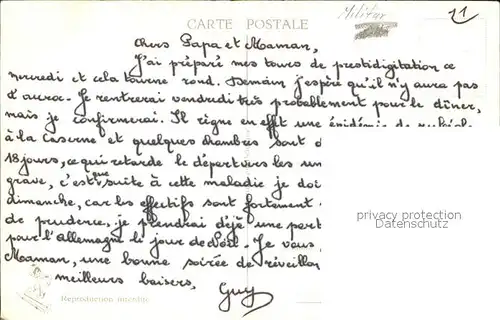 CARTE POSTALE
Militar
11
Chers Papa et Maman,
J'ai préparé mes tours de prestidigitation ce
mercredi et cela tourne rond. Demain j'espère qu'il n'y aura pas
d'accroc. Je rentrerai vendredi très probablement pour le dîner,
mais je confirmerai. Il règne en effet une épidémie de
à la caserne et quelques chambres sont
18 jours, ce qui retarde le départ vers les
grave, c'est que suite à cette maladie je
dimanche, car les effectifs sont fortement
de prudence, je prendrai déjà une
pour l'Allemagne le jour de Noël. Je vous
Maman, une bonne soirée de réveillon
meilleurs baisers,
Guy
privacy protection
Datenschutz
Reproduction interdite